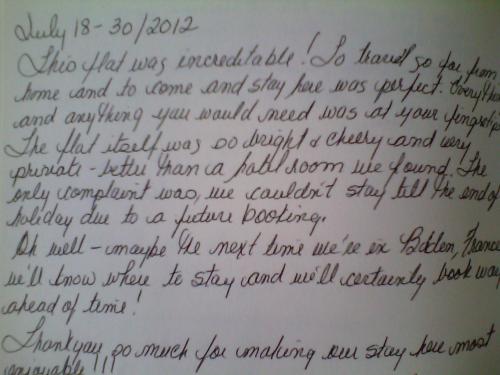 July 18-30/2012
This flat was increditable! To travel so far from
home and to come and stay here was perfect. Everything
and anything you would need was at your fingertips
The flat itself was so bright & cheery and very
private - better than a hotel room we found. The
only complaint was, we couldn't stay till the end of
holiday due to a future booking.
Oh well - maybe the next time we're in France
we'll know where to stay and we'll certainly book way
ahead of time!
Thankyou, so much for making our stay here most
enjoyable!!!